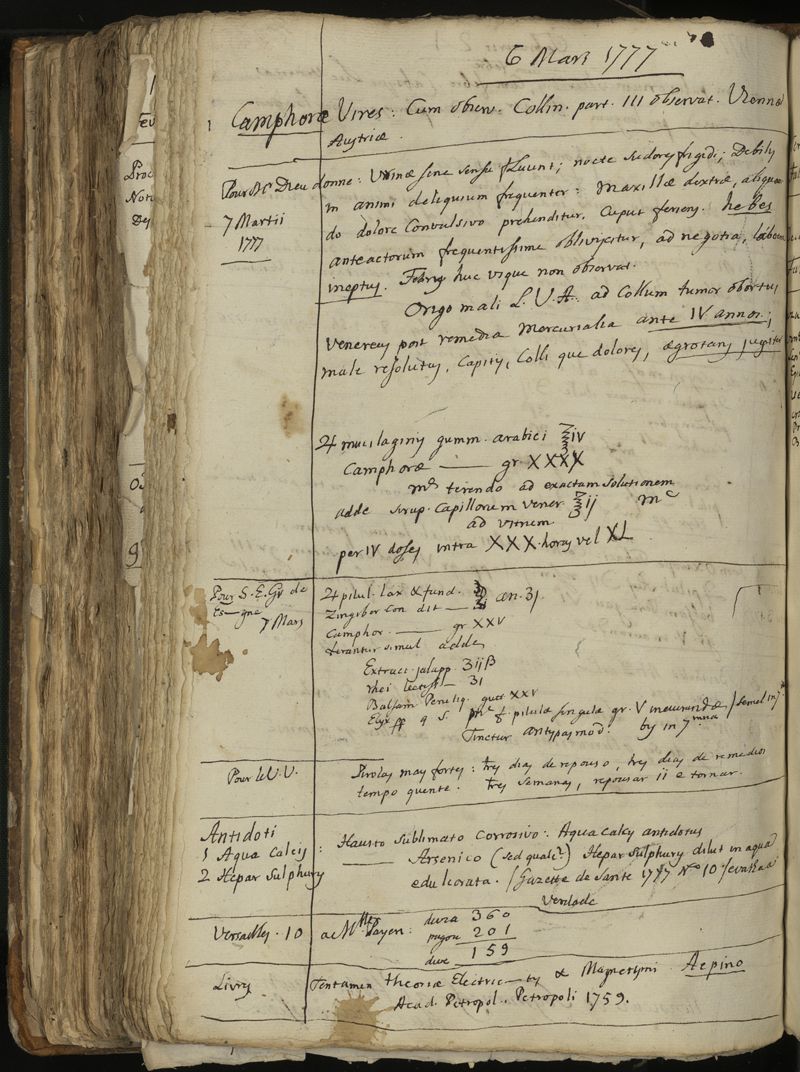 6 Mars 1777
1 Camphoræ Vires: Cum observ. Collin. part. III observat. Vienna
Austriæ.
Pour Mr Dieu donne: Urinæ sine sensu fluunt; nocte sudores frigidi; Debilis
in animi deliquium frequenter: Maxillæ dextræ, aliquan
7 Martii do dolore Convulsivo prehenditur. Caput feriens. hebes
1777 anteactorum frequentissime obliviscitur, ad negotia, labores
ineptus. Febris huc usque non observat.
Origo mali L. V. A. ad Collum tumor obortus
Venereus post remedia mercurialia ante IV annos;
male resolutus, Capitis, Colli que dolores, ægrotans
♃ mucilaginis gumm. arabici ℥iv
Camphoræ — gr. XXXX
terendo ad exactam solutionem
adde sirup. Capillorum Vener ℥ij
ad vitrum
per IV doses intra XXX horas vel XL
Pour S. E. Gr de
Es-gne
7 Mars
♃ pilul. lax & fund. an. ʒj.
Zingiber Con dit —
Camphor. — gr XXV
terantur simul adde
Extract. jalapp ʒijß
rhei —
Balsam. gutt XXV
q s. pilulæ singulæ gr. V
Tinctur antispasmod.
Pour le V. V. Pirolas mas fortes: tres dias de repouso, tres dias de remedios
tempo quente. tres semanas, repousar ii e tornar.
Antidoti
1 Aqua Calcis: Hausto Sublimato Corrosivo: Aqua calcis antidotus
2 Hepar Sulphuris — Arsenico (sed quali?) Hepar Sulphuris dilut in aqua
edulcorata. / Gazette de Santé 1777 No 10
Verdade
Versailles. 10 a Mlle Payen: devia 360
pagou 201
deve 159
Livres Tentamen theoriæ Electric—tis & Magnetismi Aepino
Acad. Petropol. Petropoli 1759.